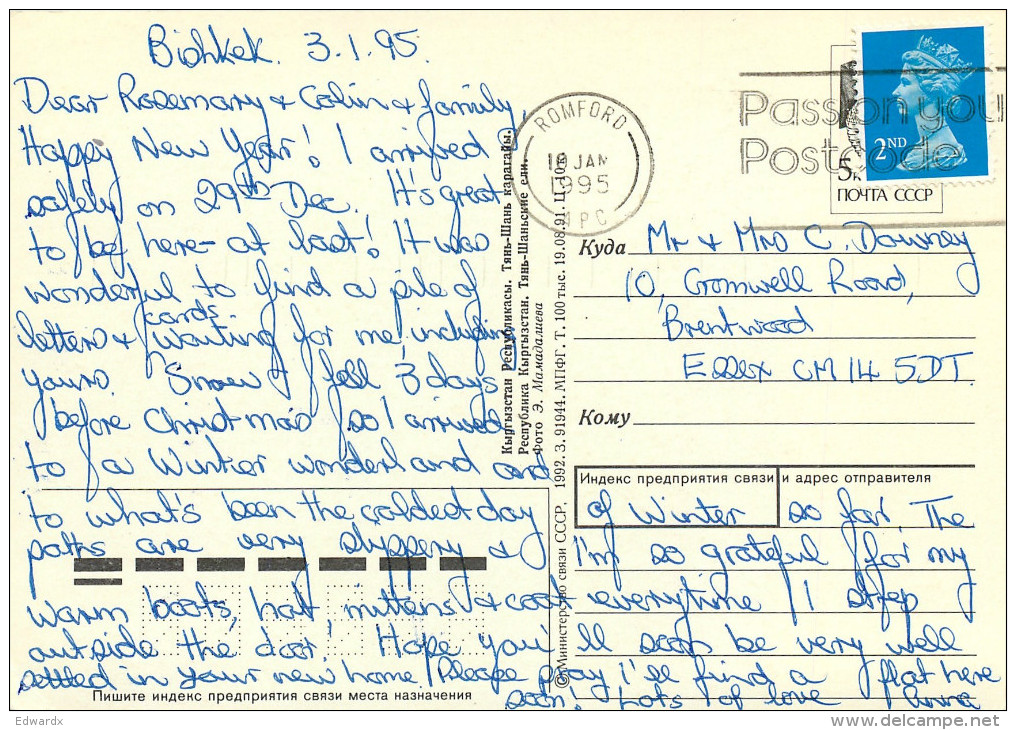 Bishkek. 3.1.95.
Dear Rosemary & Colin & family,
Happy New Year! I arrived
safely on 29th Dec. It's great
to be here - at last! It was
wonderful to find a pile of
cards
letters & waiting for me, including
yours. Snow fell 3 days
before Christmas so I arrived
to a Winter wonderland and
to what's been the coldest day
of Winter so far. The
paths are very slippery &
I'm so grateful for my
warm boots, hat, mittens & coat everytime I step
outside the door! Hope you'll soon be very well
settled in your new home! Please pray I'll find a flat here
soon! Lots of love Anna
Пишите индекс предприятия связи места назначения
Кыргызстан Республикасы. Тянь-Шань карагайы.
Республика Кыргызстан. Тянь-Шаньские ели.
Фото Э. Мамадашева
© Министерство связи СССР, 1992. З. 91944. МПФГ. Т. 100 тыс. 19.08.91. Ц. 10 к.
ROMFORD
JAN
1995
APC
Pass on your
Postcode
2ND
5к
ПОЧТА СССР
Куда Mr & Mrs C. Downey
10, Cromwell Road,
Brentwood
Essex CM14 5DT.
Кому
Индекс предприятия связи и адрес отправителя
Edwardx
delcampe.net